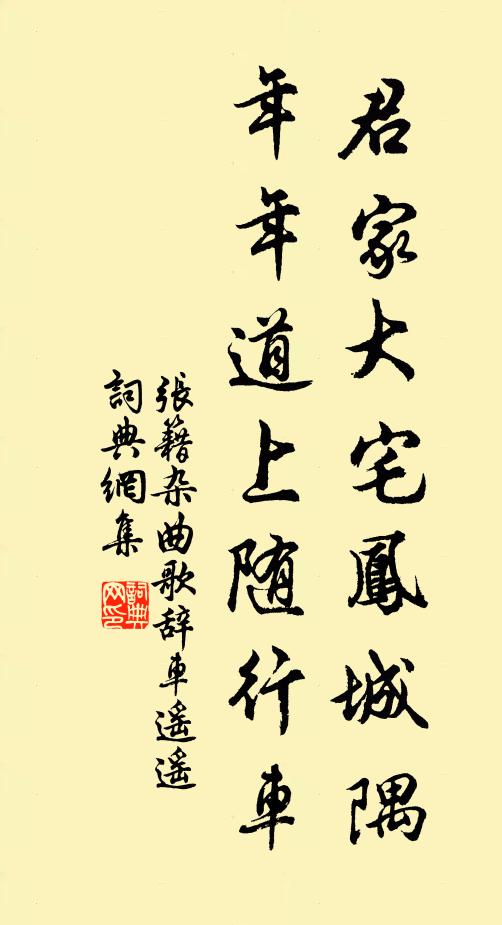 君家大宅鳳城隅
年年道上随行車
張籍杂曲歌辞車遥遥
詞典網集
詞典
网印